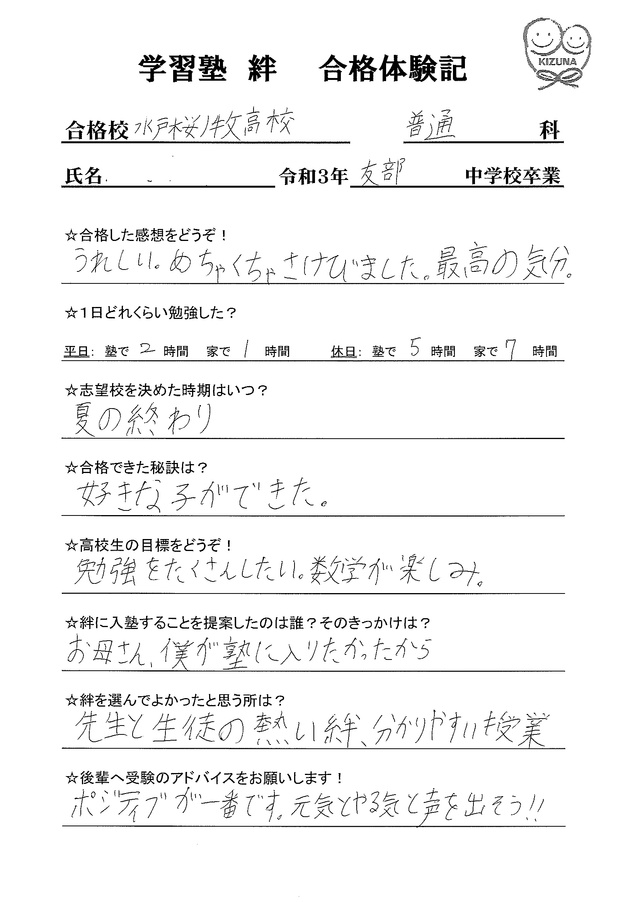 学習塾 絆 合格体験記
KIZUNA
合格校 水戸桜ノ牧高校 普通 科
氏名 令和3年 友部 中学校卒業
☆合格した感想をどうぞ！
うれしい。めちゃくちゃさけびました。最高の気分。
☆1日どれくらい勉強した？
平日: 塾で 2 時間 家で 1 時間 休日: 塾で 5 時間 家で 7 時間
☆志望校を決めた時期はいつ？
夏の終わり
☆合格できた秘訣は？
好きな子ができた。
☆高校生の目標をどうぞ！
勉強をたくさんしたい。数学が楽しみ。
☆絆に入塾することを提案したのは誰？そのきっかけは？
お母さん、僕が塾に入りたかったから
☆絆を選んでよかったと思う所は？
先生と生徒の熱い絆、分かりやすい授業
☆後輩へ受験のアドバイスをお願いします！
ポジティブが一番です。元気とやる気と声を出そう!!